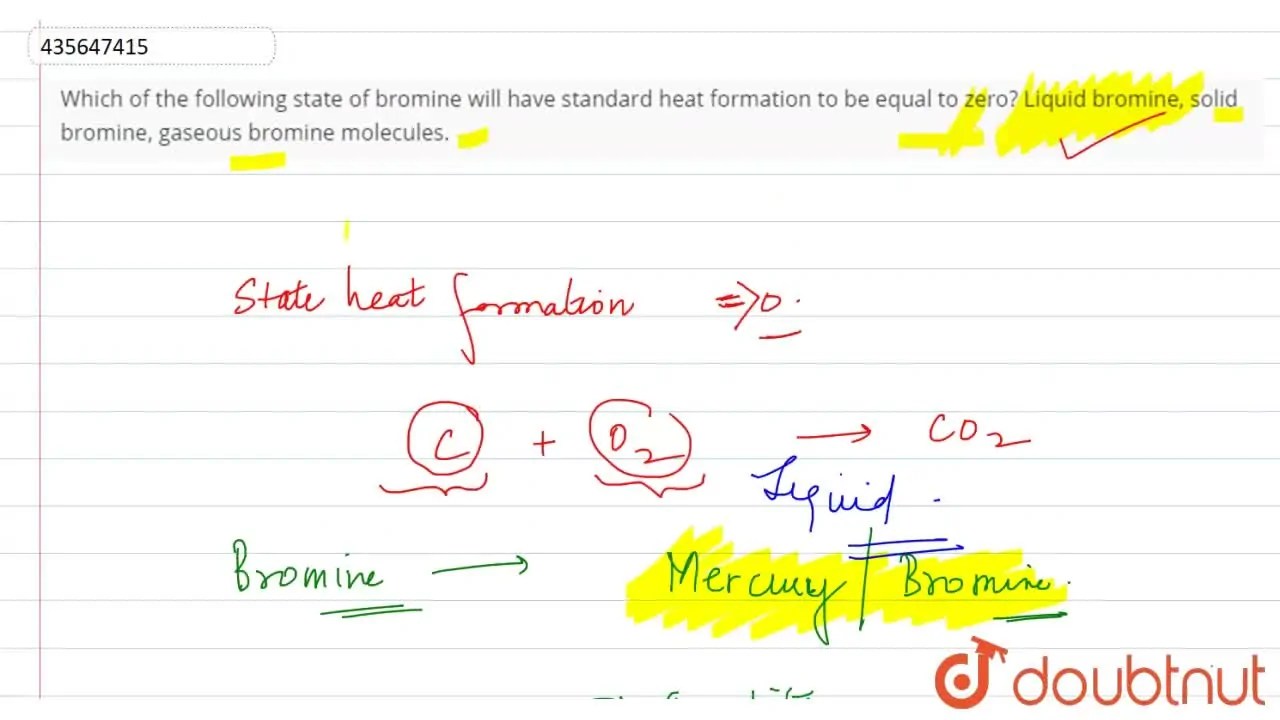 435647415
Which of the following state of bromine will have standard heat formation to be equal to zero? Liquid bromine, solid
bromine, gaseous bromine molecules.
State heat formation => 0.
C + O2 → CO2
Liquid.
Bromine → Mercury | Bromine.
doubtnut